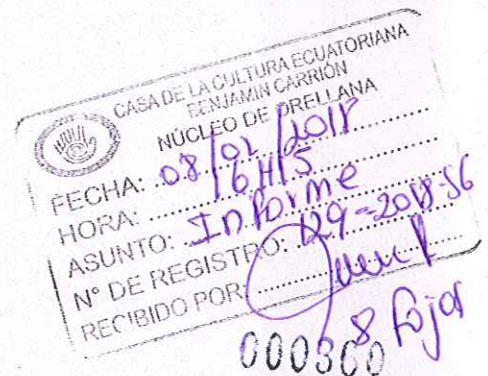 CASA DE LA CULTURA ECUATORIANA
BENJAMIN CARRIÓN
NÚCLEO DE ORELLANA
FECHA: 08/02/2018
HORA: 16H15
ASUNTO: Informe
N° DE REGISTRO: 129-2018-SG
RECIBIDO POR:
8 fojas
000300